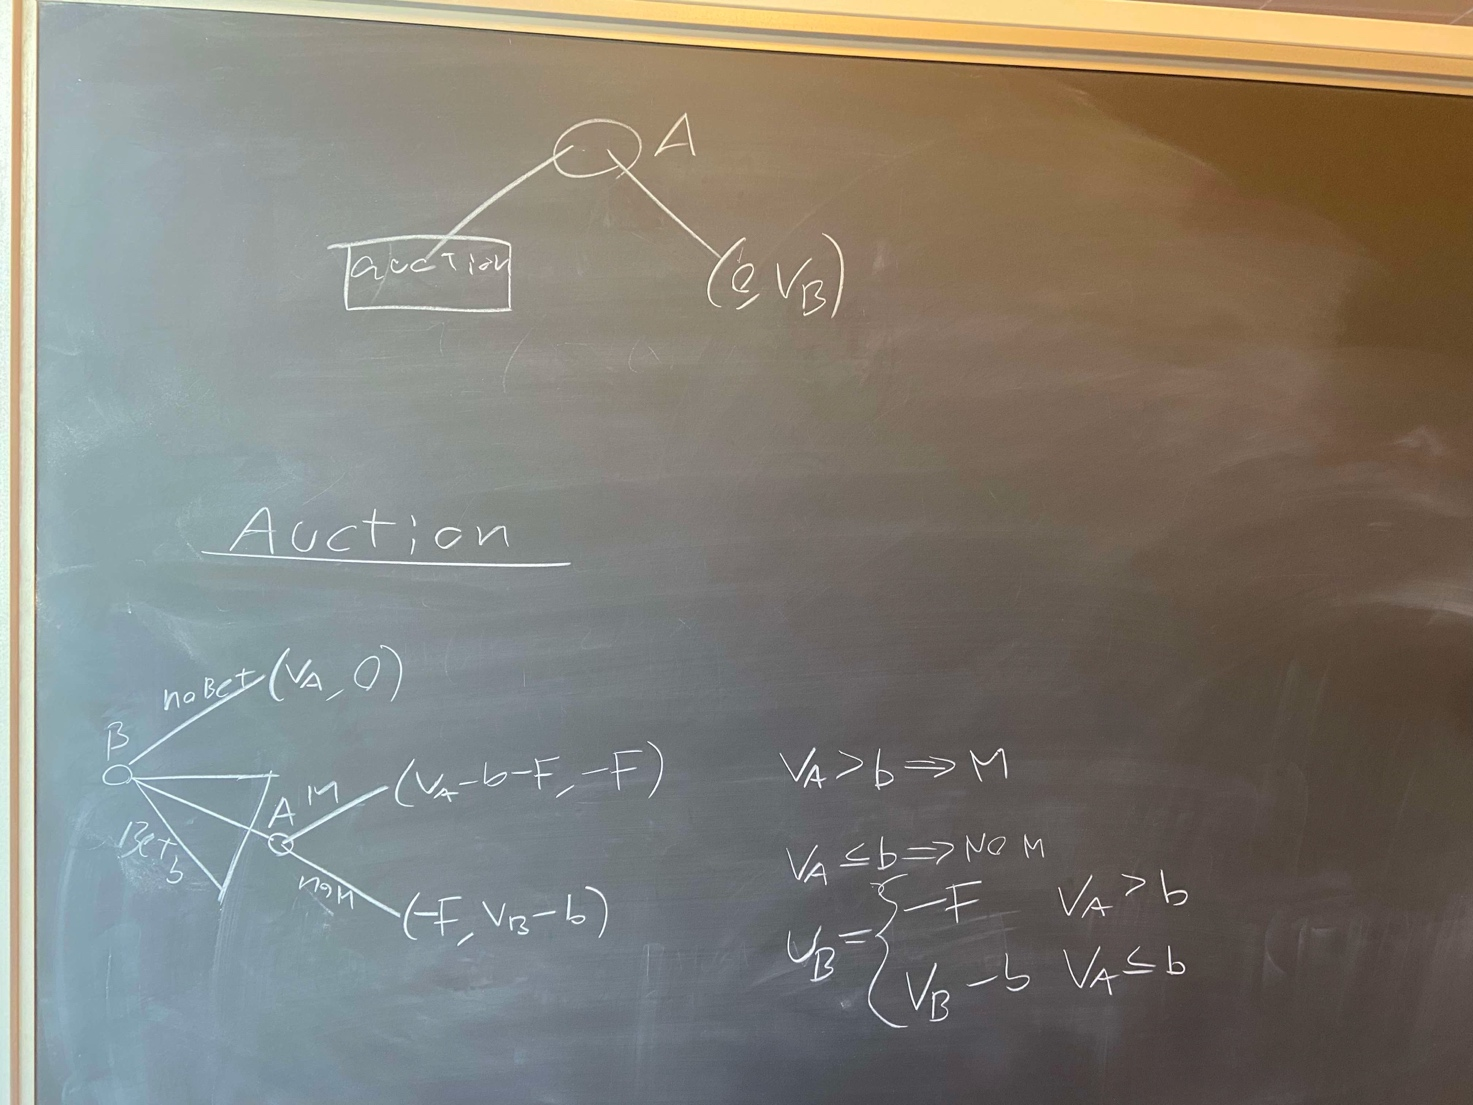 A
auction
(0, VB)
Auction
no Bet (VA, 0)
B
A M (VA-b-F, -F)
Bet b
no M (-F, VB-b)
VA > b ⇒ M
VA ≤ b ⇒ NO M
UB = { -F VA > b
VB - b VA ≤ b